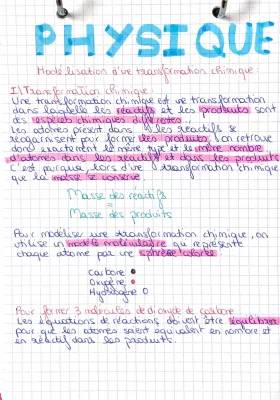 PHYSIQUE
Modélisation d'une transformation chimique
I) Transformation chimique :
Une transformation chimique est une transformation
dans laquelle les réactifs et les produits sont
des espèces chimiques différentes.
Les atomes présent dans les réactifs se
réorganissent pour former des produits, on retrouve
donc exactement le même type et le même nombre
d'atomes dans les réactifs et dans les produits
C'est pourquoi, lors d'une transformation chimique
que la masse se conserve.
Masse des réactifs
=
Masse des produits
Pour modéliser une transformation chimique, on
utilise un modèle moléculaire qui représente
chaque atome par une sphère colorée
Carbone
Oxygène
Hydrogène
Pour former 3 molécules de dioxyde de carbone
Les équations de réactions doivent être équilibrées
pour que les atomes soient équivalent en nombre et
en réactif dans les produits.